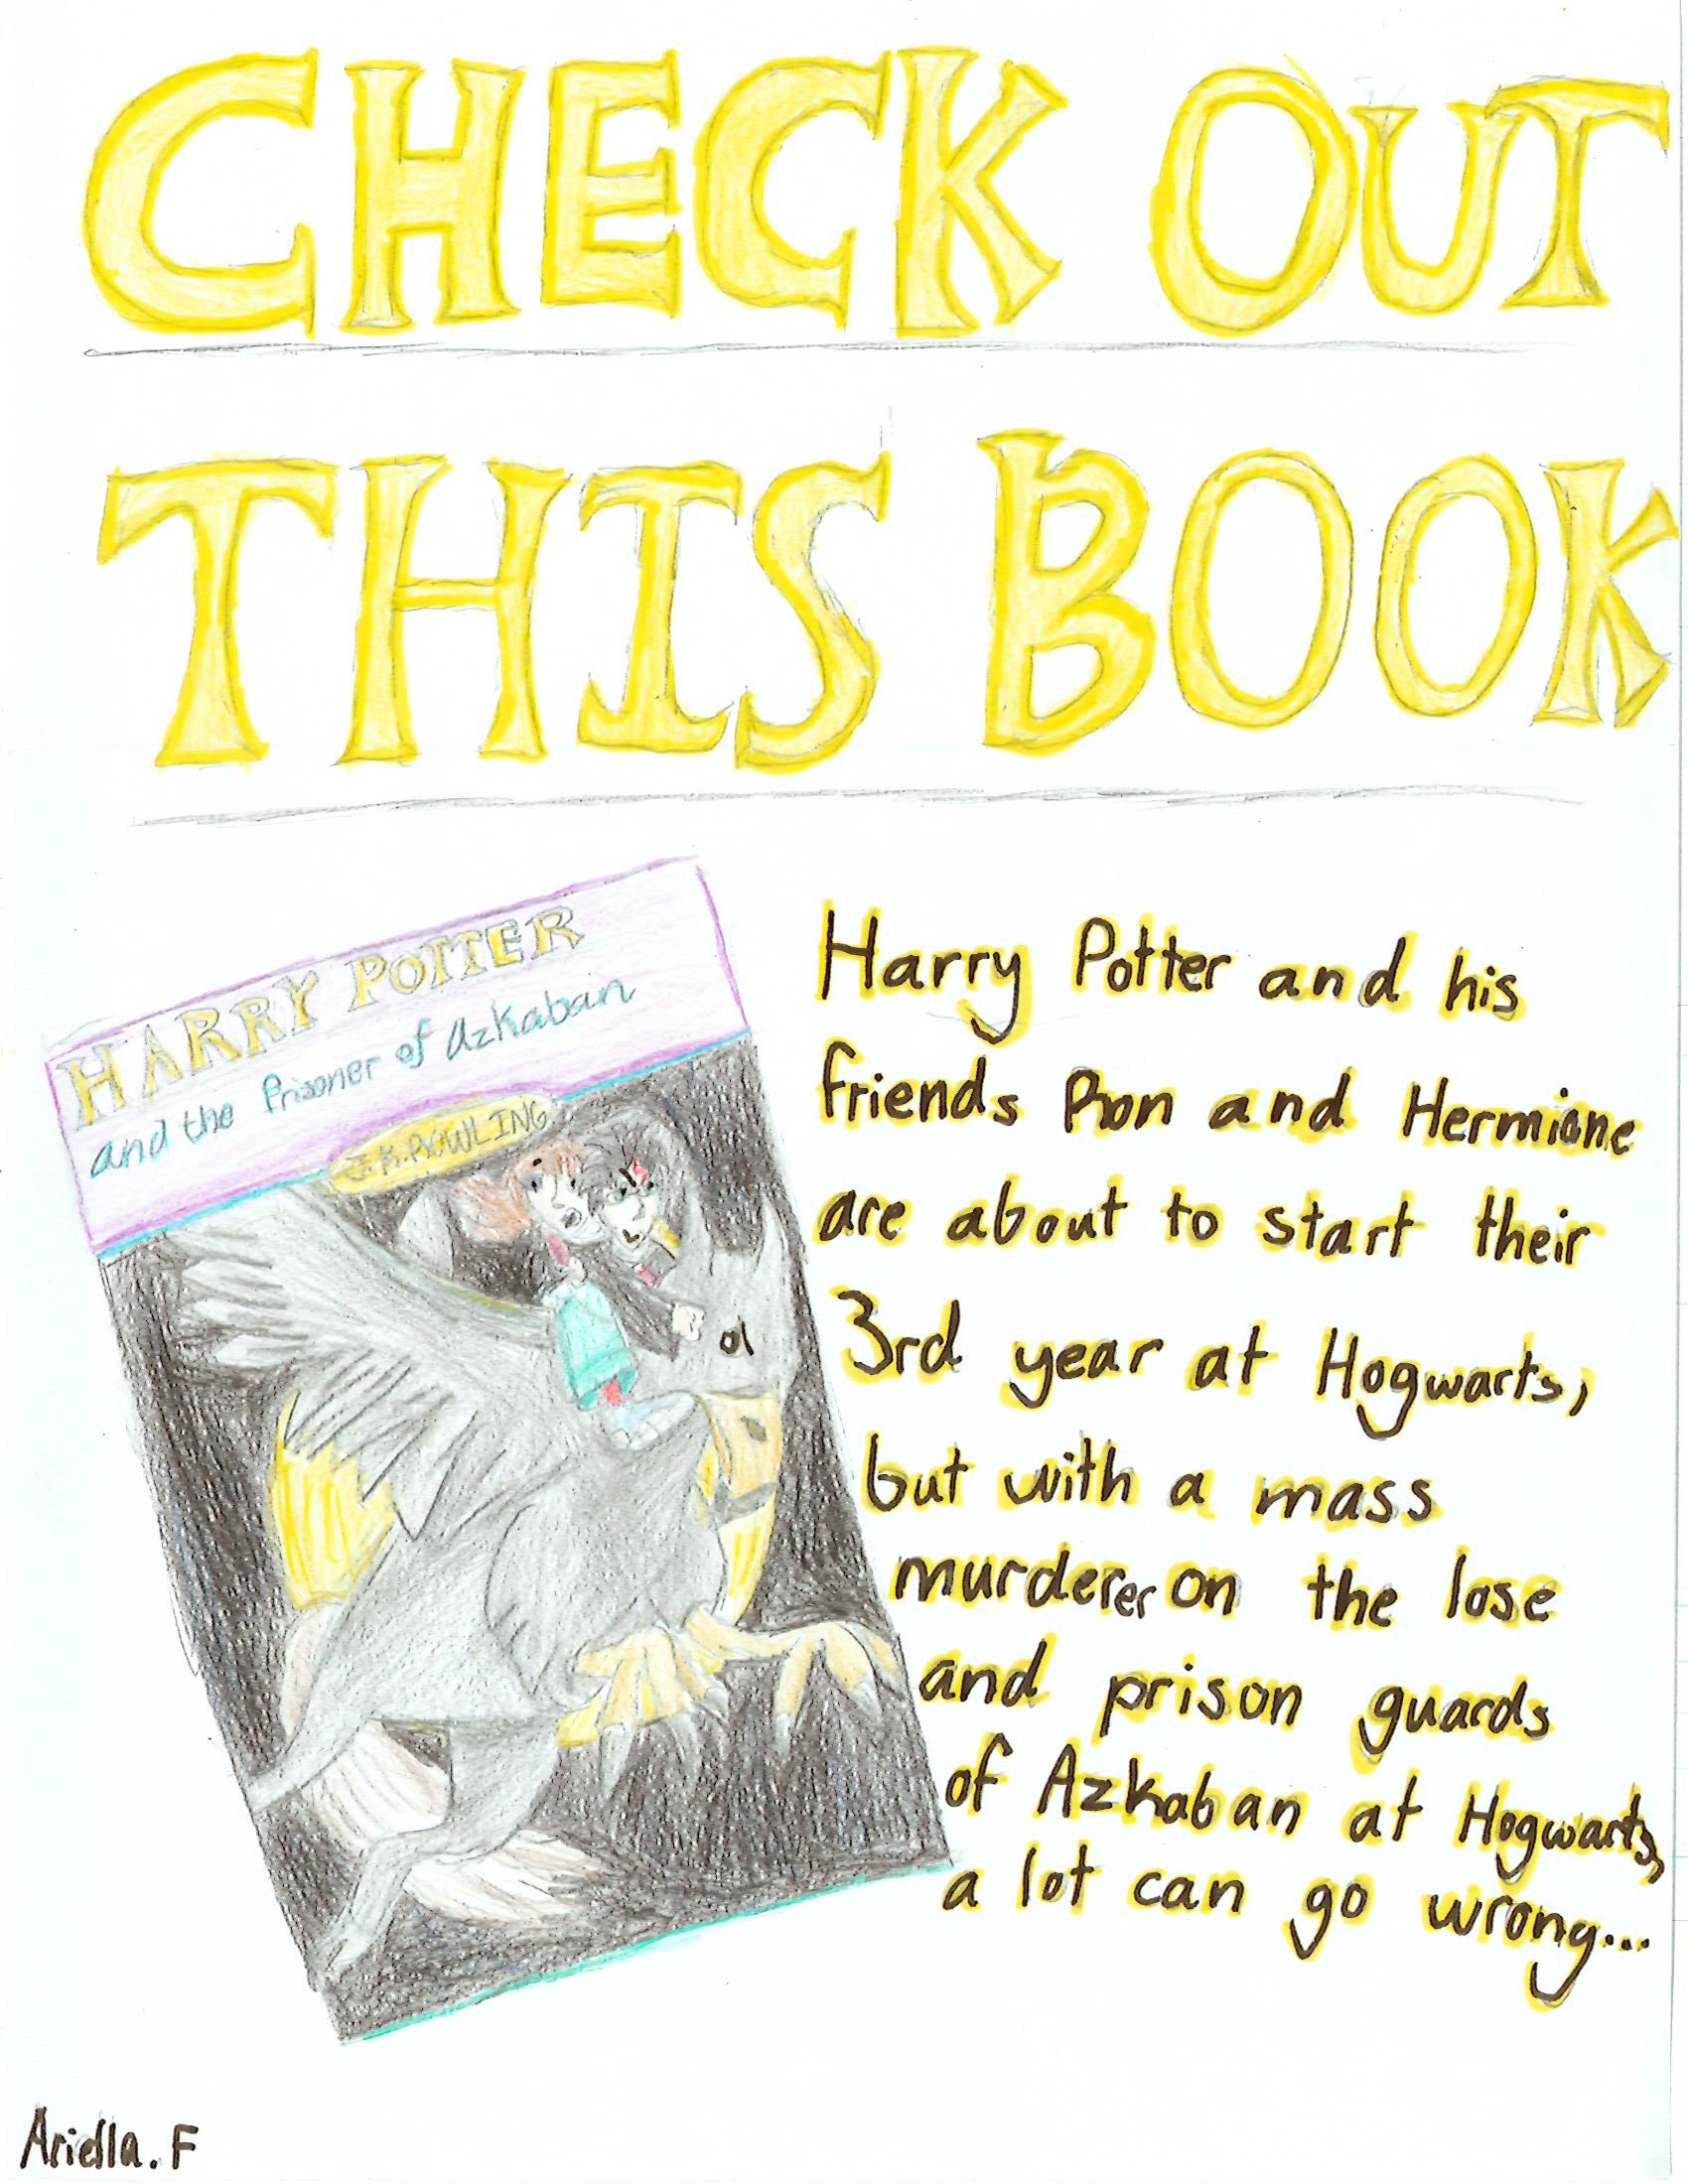 CHECK OUT
THIS BOOK
HARRY POTTER
and the Prisoner of Azkaban
J.K.ROWLING
Harry Potter and his
friends Ron and Hermione
are about to start their
3rd year at Hogwarts,
but with a mass
murderer on the lose
and prison guards
of Azkaban at Hogwarts,
a lot can go wrong...
Ariella.F